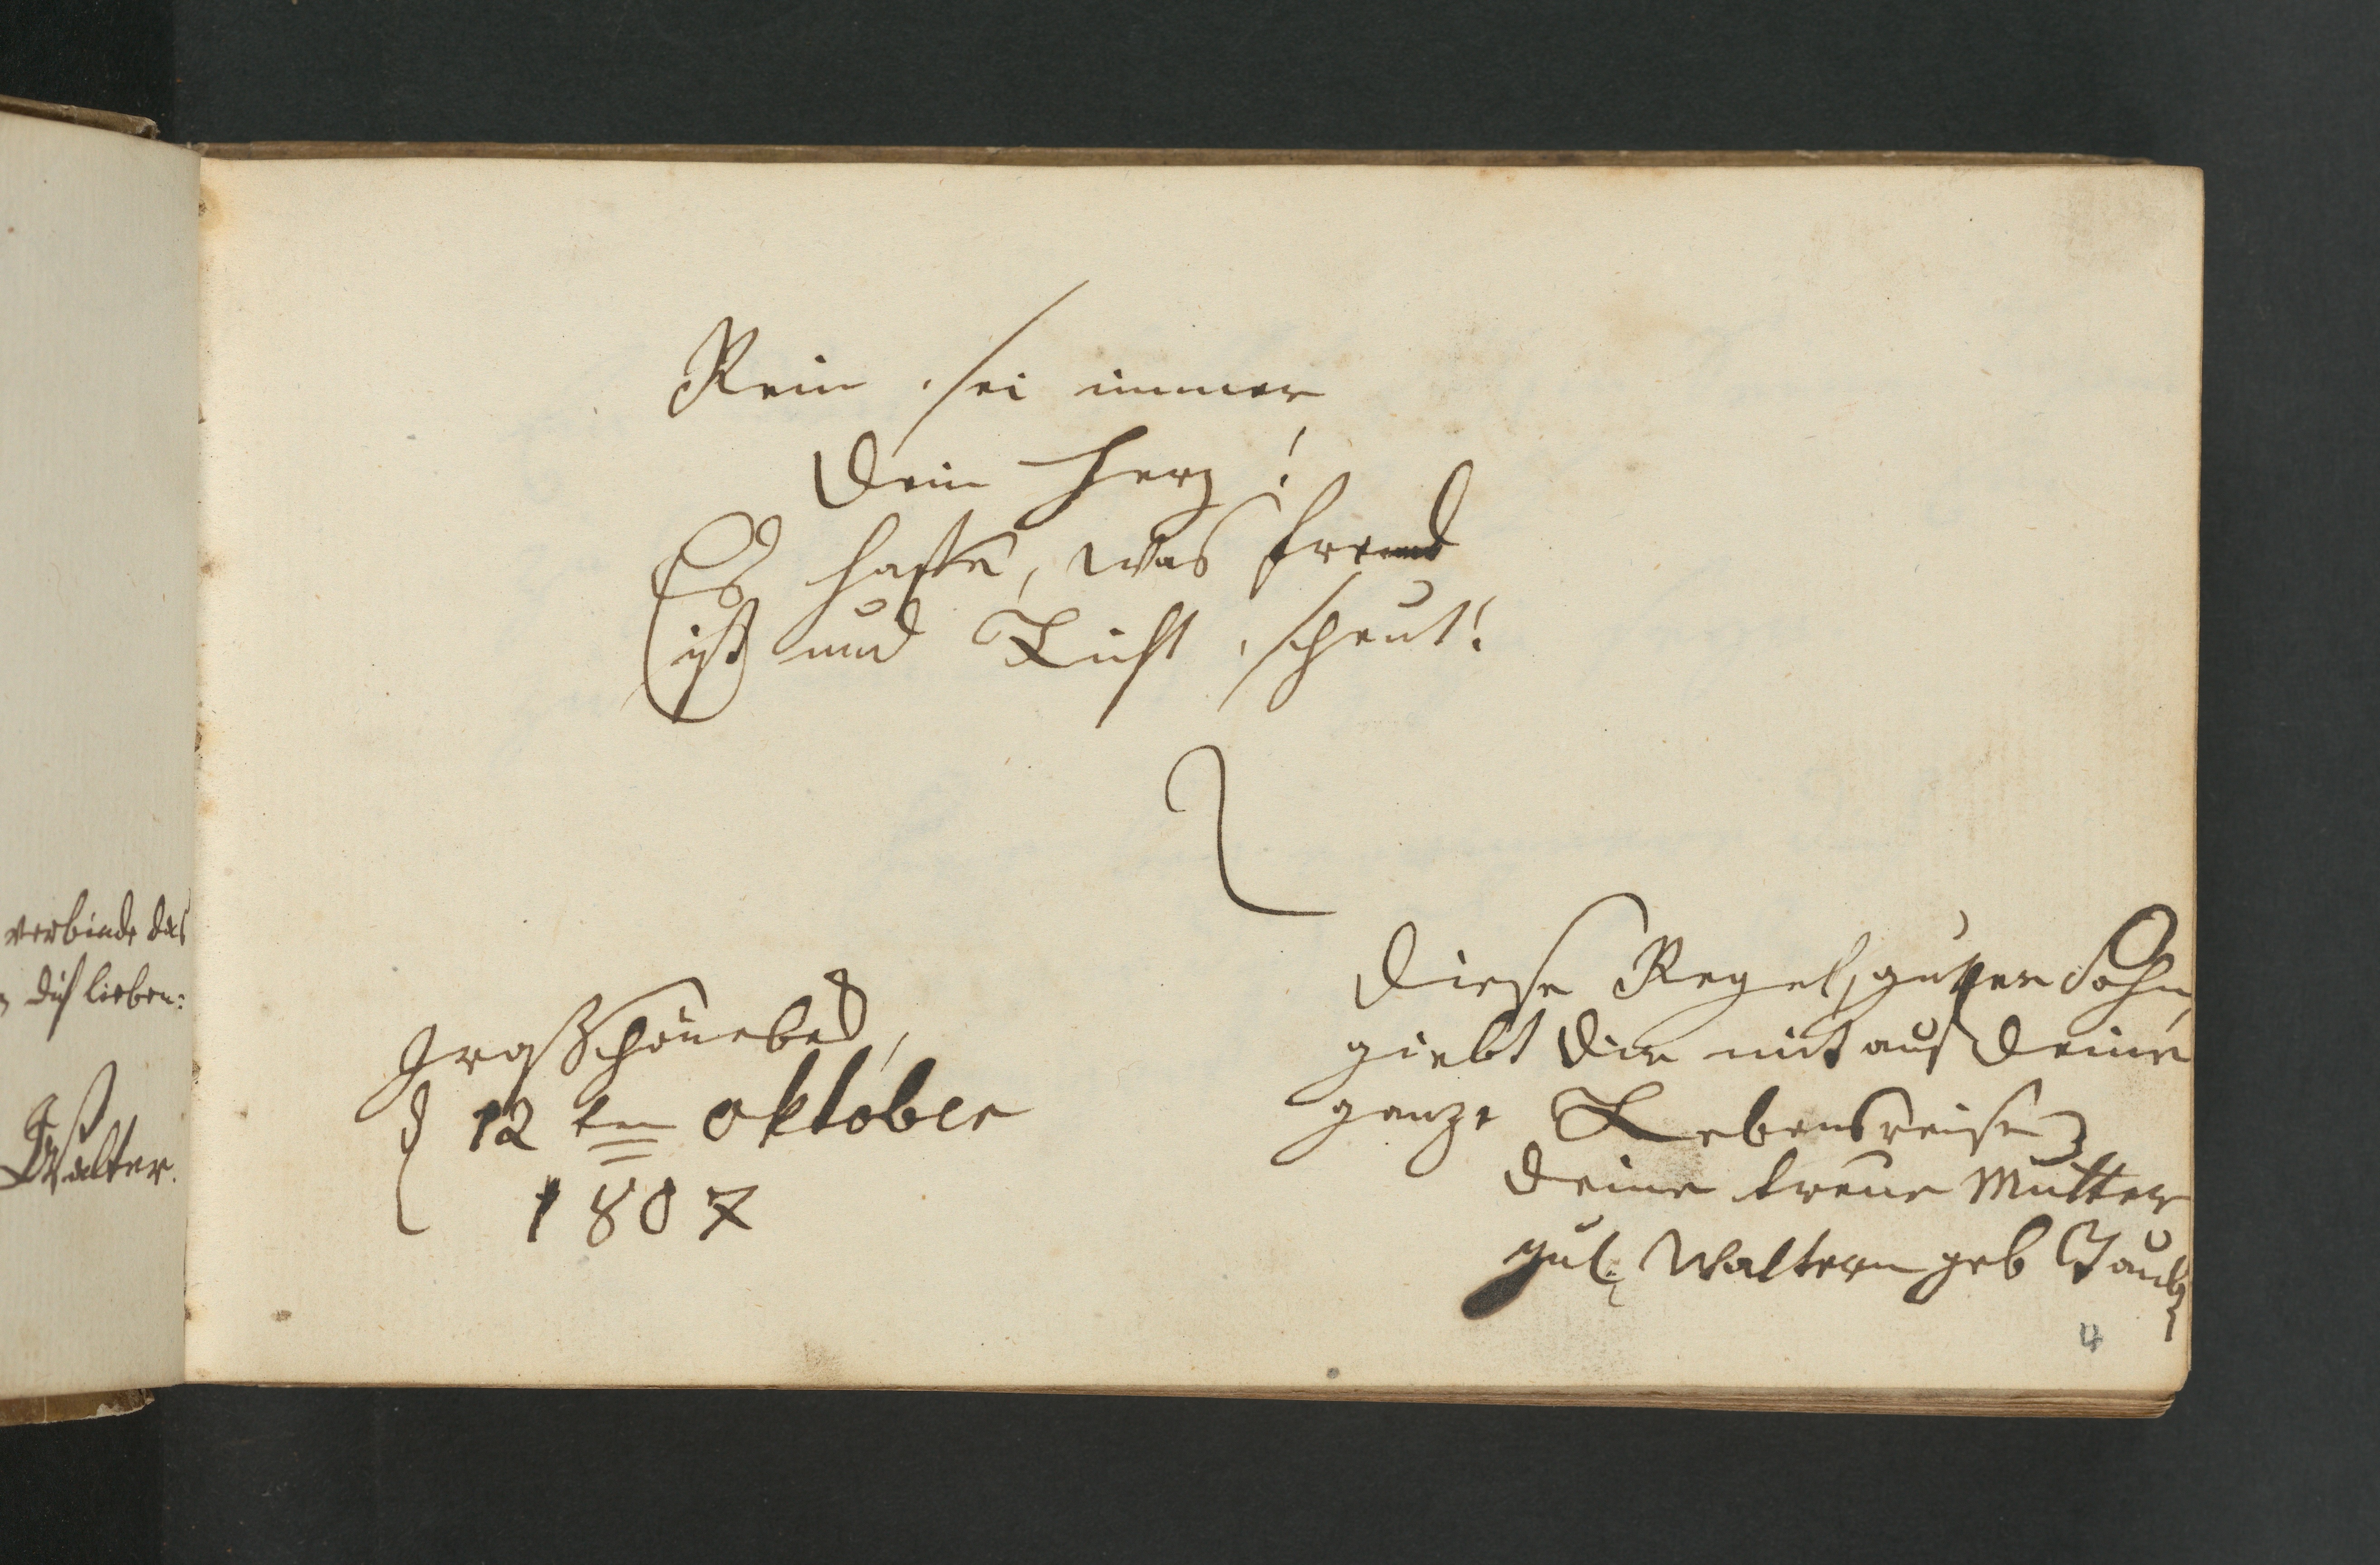 verbinde das
dich lieben:
Walter.
Rein sei immer
Dein Herz!
Es hasse, was fremd
ist und Licht scheut!
GroßSchönebek,
d 12ten oktober
1807
Diese Regel, guter Sohn,
giebt Dir mit auf Deine
ganze Lebensreise
Deine treue Mutter
Jul. Waltern geb
4